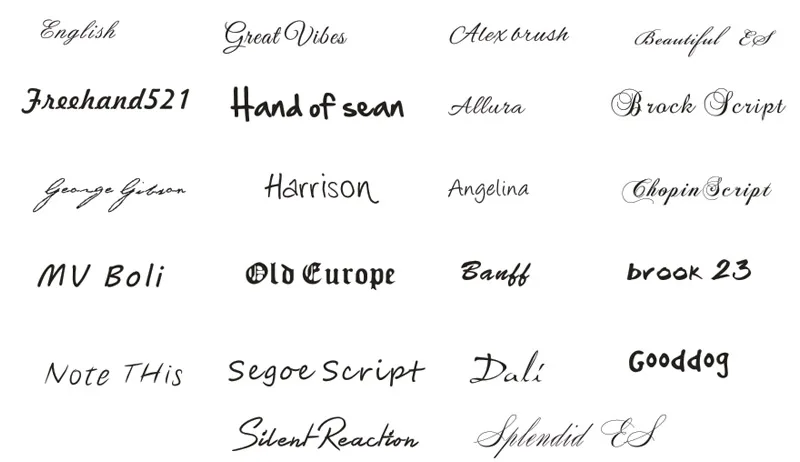 English
Great Vibes
Alex brush
Beautiful ES
Freehand521
Hand of sean
Allura
Brock Script
George Gibson
Harrison
Angelina
ChopinScript
MV Boli
Old Europe
Banff
brook 23
Note THis
Segoe Script
Dalí
Gooddog
Silent Reaction
Splendid ES